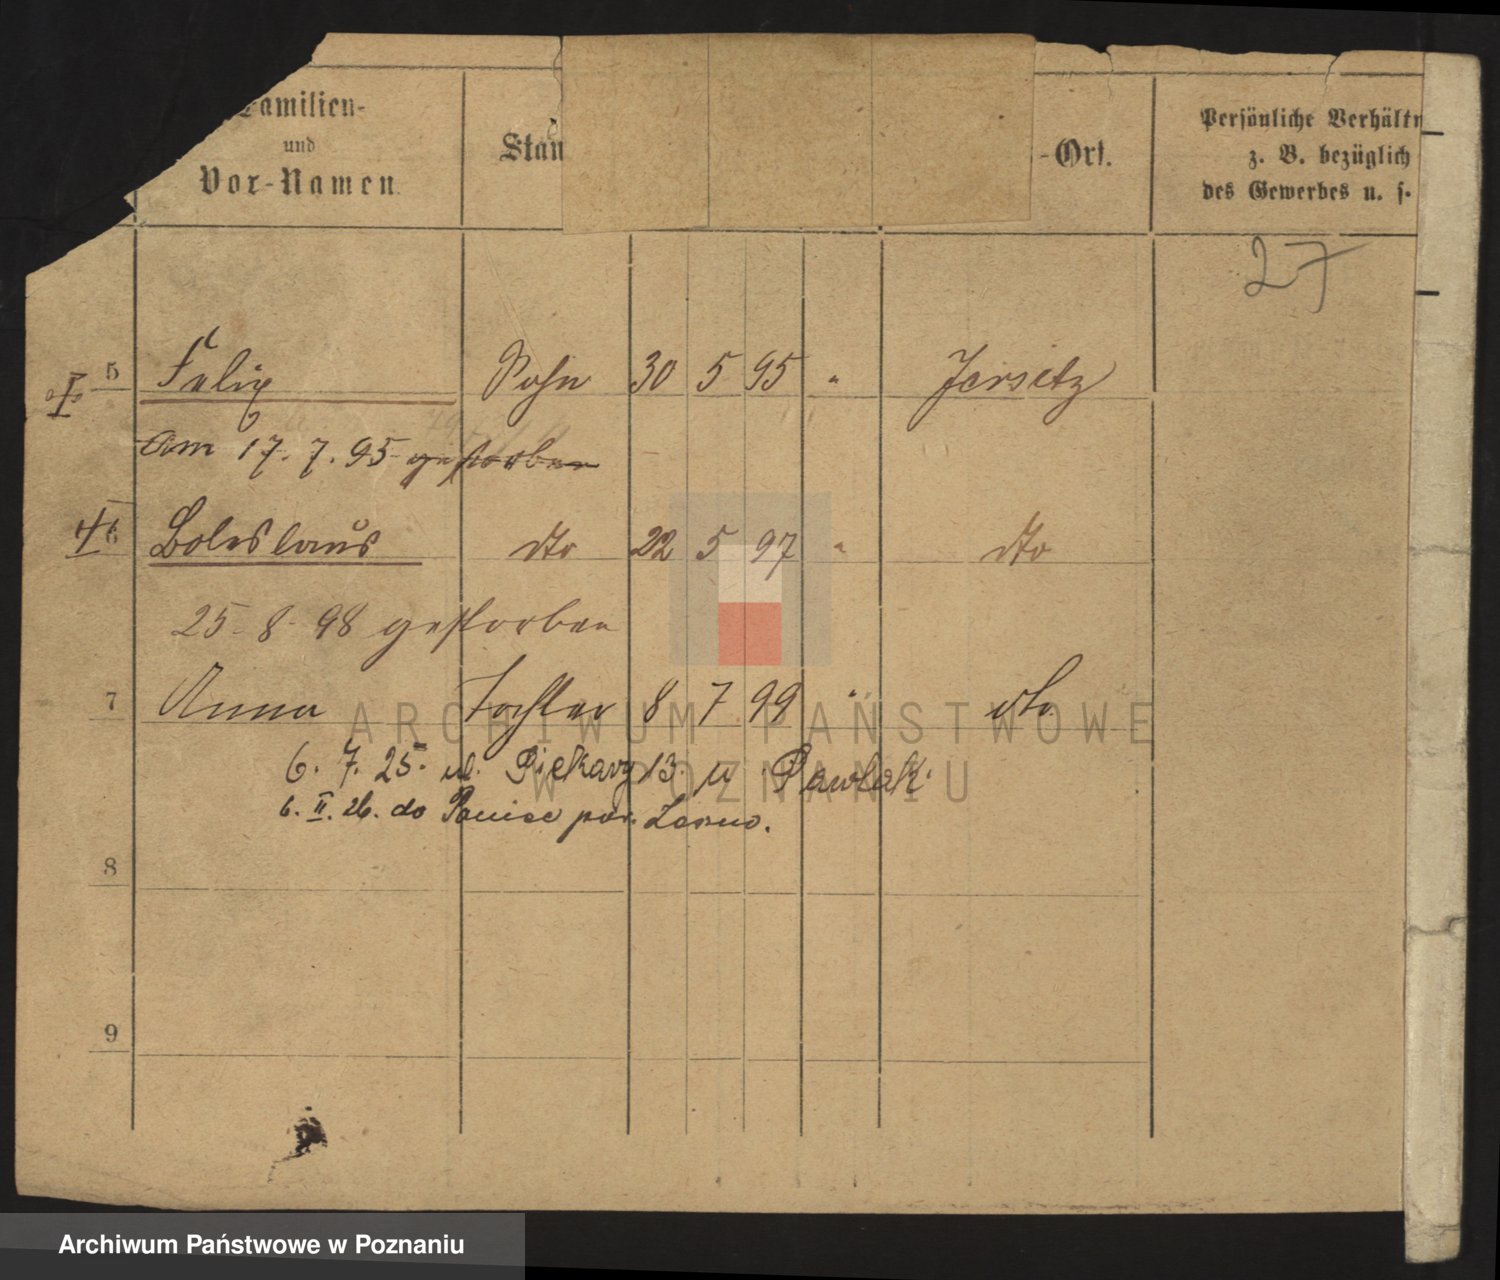 Familien-
und
Vor-Namen.
Stan
-Ort.
Persönliche Verhältn
z. B. bezüglich
des Gewerbes u. s.
27
5 Felix Sohn 30 5 95 " Jersitz
am 17. 7. 95 gestorben
6 Boleslaus dto 22 5 97 " dto
25. 8. 98 gestorben
7 Anna Tochter 8 7 99 " dto
6. 7. 25. ul. Piekary 13. u Pawlak.
6. II. 26. do pow.
8
9
ARCHIWUM PAŃSTWOWE
W POZNANIU
Archiwum Państwowe w Poznaniu